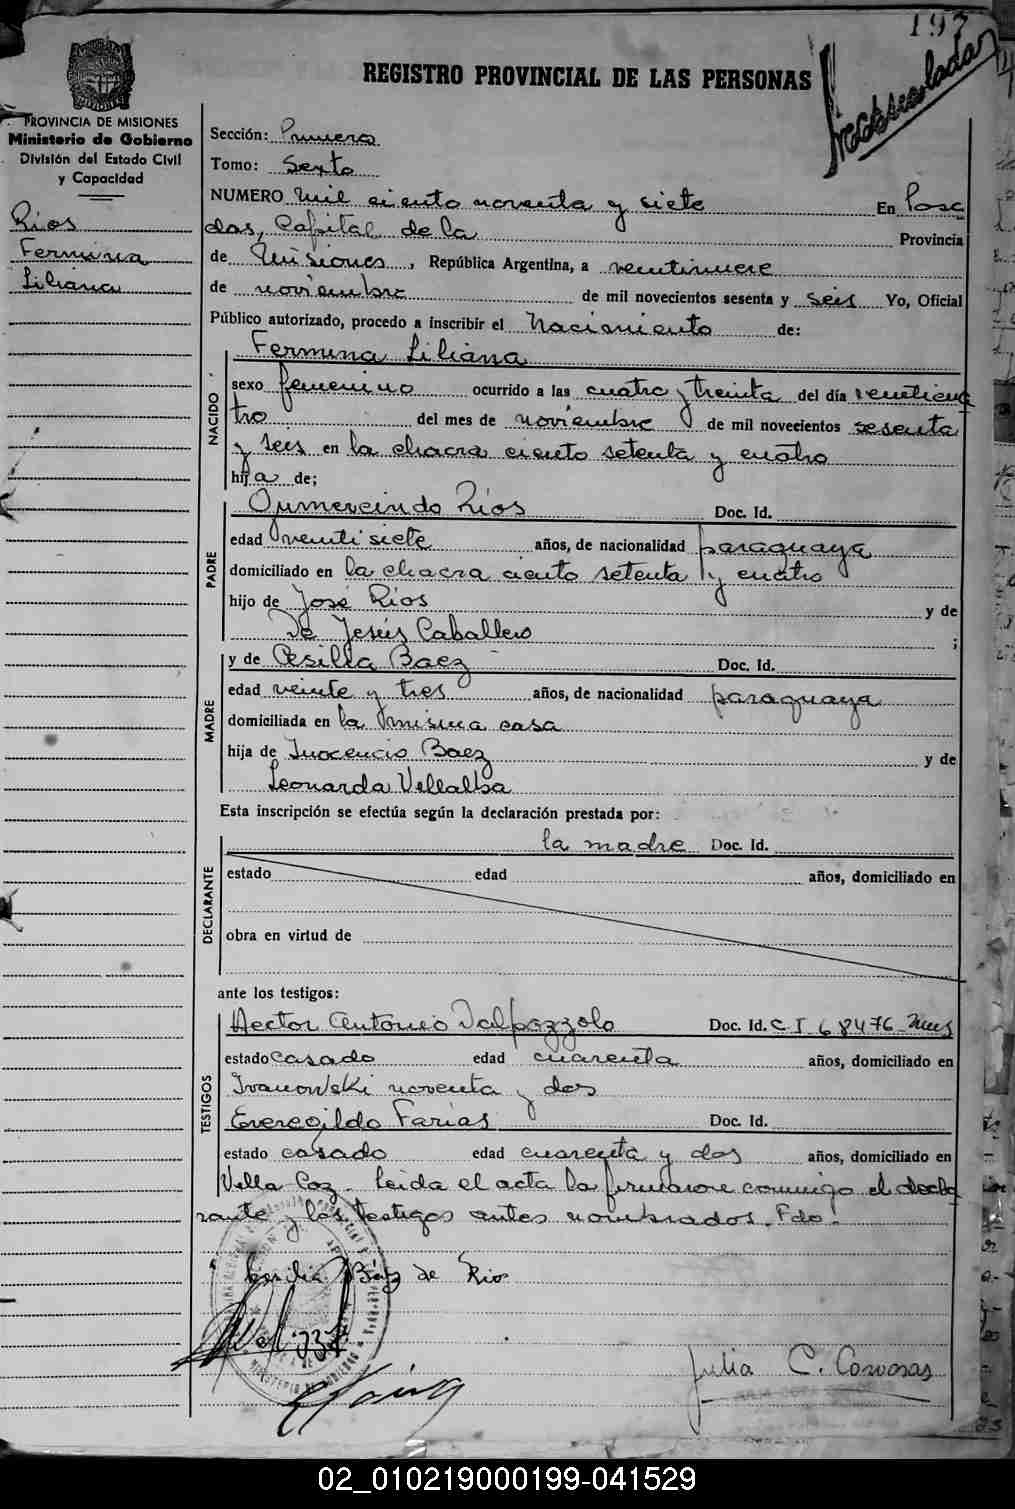 193
REGISTRO PROVINCIAL DE LAS PERSONAS
PROVINCIA DE MISIONES
Ministerio de Gobierno
División del Estado Civil
y Capacidad
Rios
Fermina
Liliana
Sección: Primera
Tomo: Sexto
NUMERO mil ciento noventa y siete En Posa
das, Capital de la Provincia
de Misiones, República Argentina, a veintinueve
de noviembre de mil novecientos sesenta y seis Yo, Oficial
Público autorizado, procedo a inscribir el Nacimiento de:
Fermina Liliana
NACIDO
sexo femenino ocurrido a las cuatro y treinta del día veinticua
tro del mes de noviembre de mil novecientos sesenta
y seis en la chacra ciento setenta y cuatro
hija de;
PADRE
Gumercindo Rios Doc. Id.
edad veintisiete años, de nacionalidad paraguaya
domiciliado en la chacra ciento setenta y cuatro
hijo de José Rios y de
De Jesús Caballero ;
MADRE
y de Cesilia Baez Doc. Id.
edad veinte y tres años, de nacionalidad paraguaya
domiciliada en la misma casa
hija de Inocencio Baez y de
Leonarda Villalba
Esta inscripción se efectúa según la declaración prestada por:
DECLARANTE
la madre Doc. Id.
estado edad años, domiciliado en
obra en virtud de
ante los testigos:
TESTIGOS
Hector Antonio Dalpozzolo Doc. Id. C I 68476 Mnes
estado casado edad cuarenta años, domiciliado en
Ivanowski noventa y dos
Everegildo Farias Doc. Id.
estado casado edad cuarenta y dos años, domiciliado en
Villa Coz. Leida el acta la firmaron conmigo el decla
rante y los testigos antes nombrados. Fdo:
Cecilia Baez de Rios
Julia C. Corvosas
02_010219000199-041529